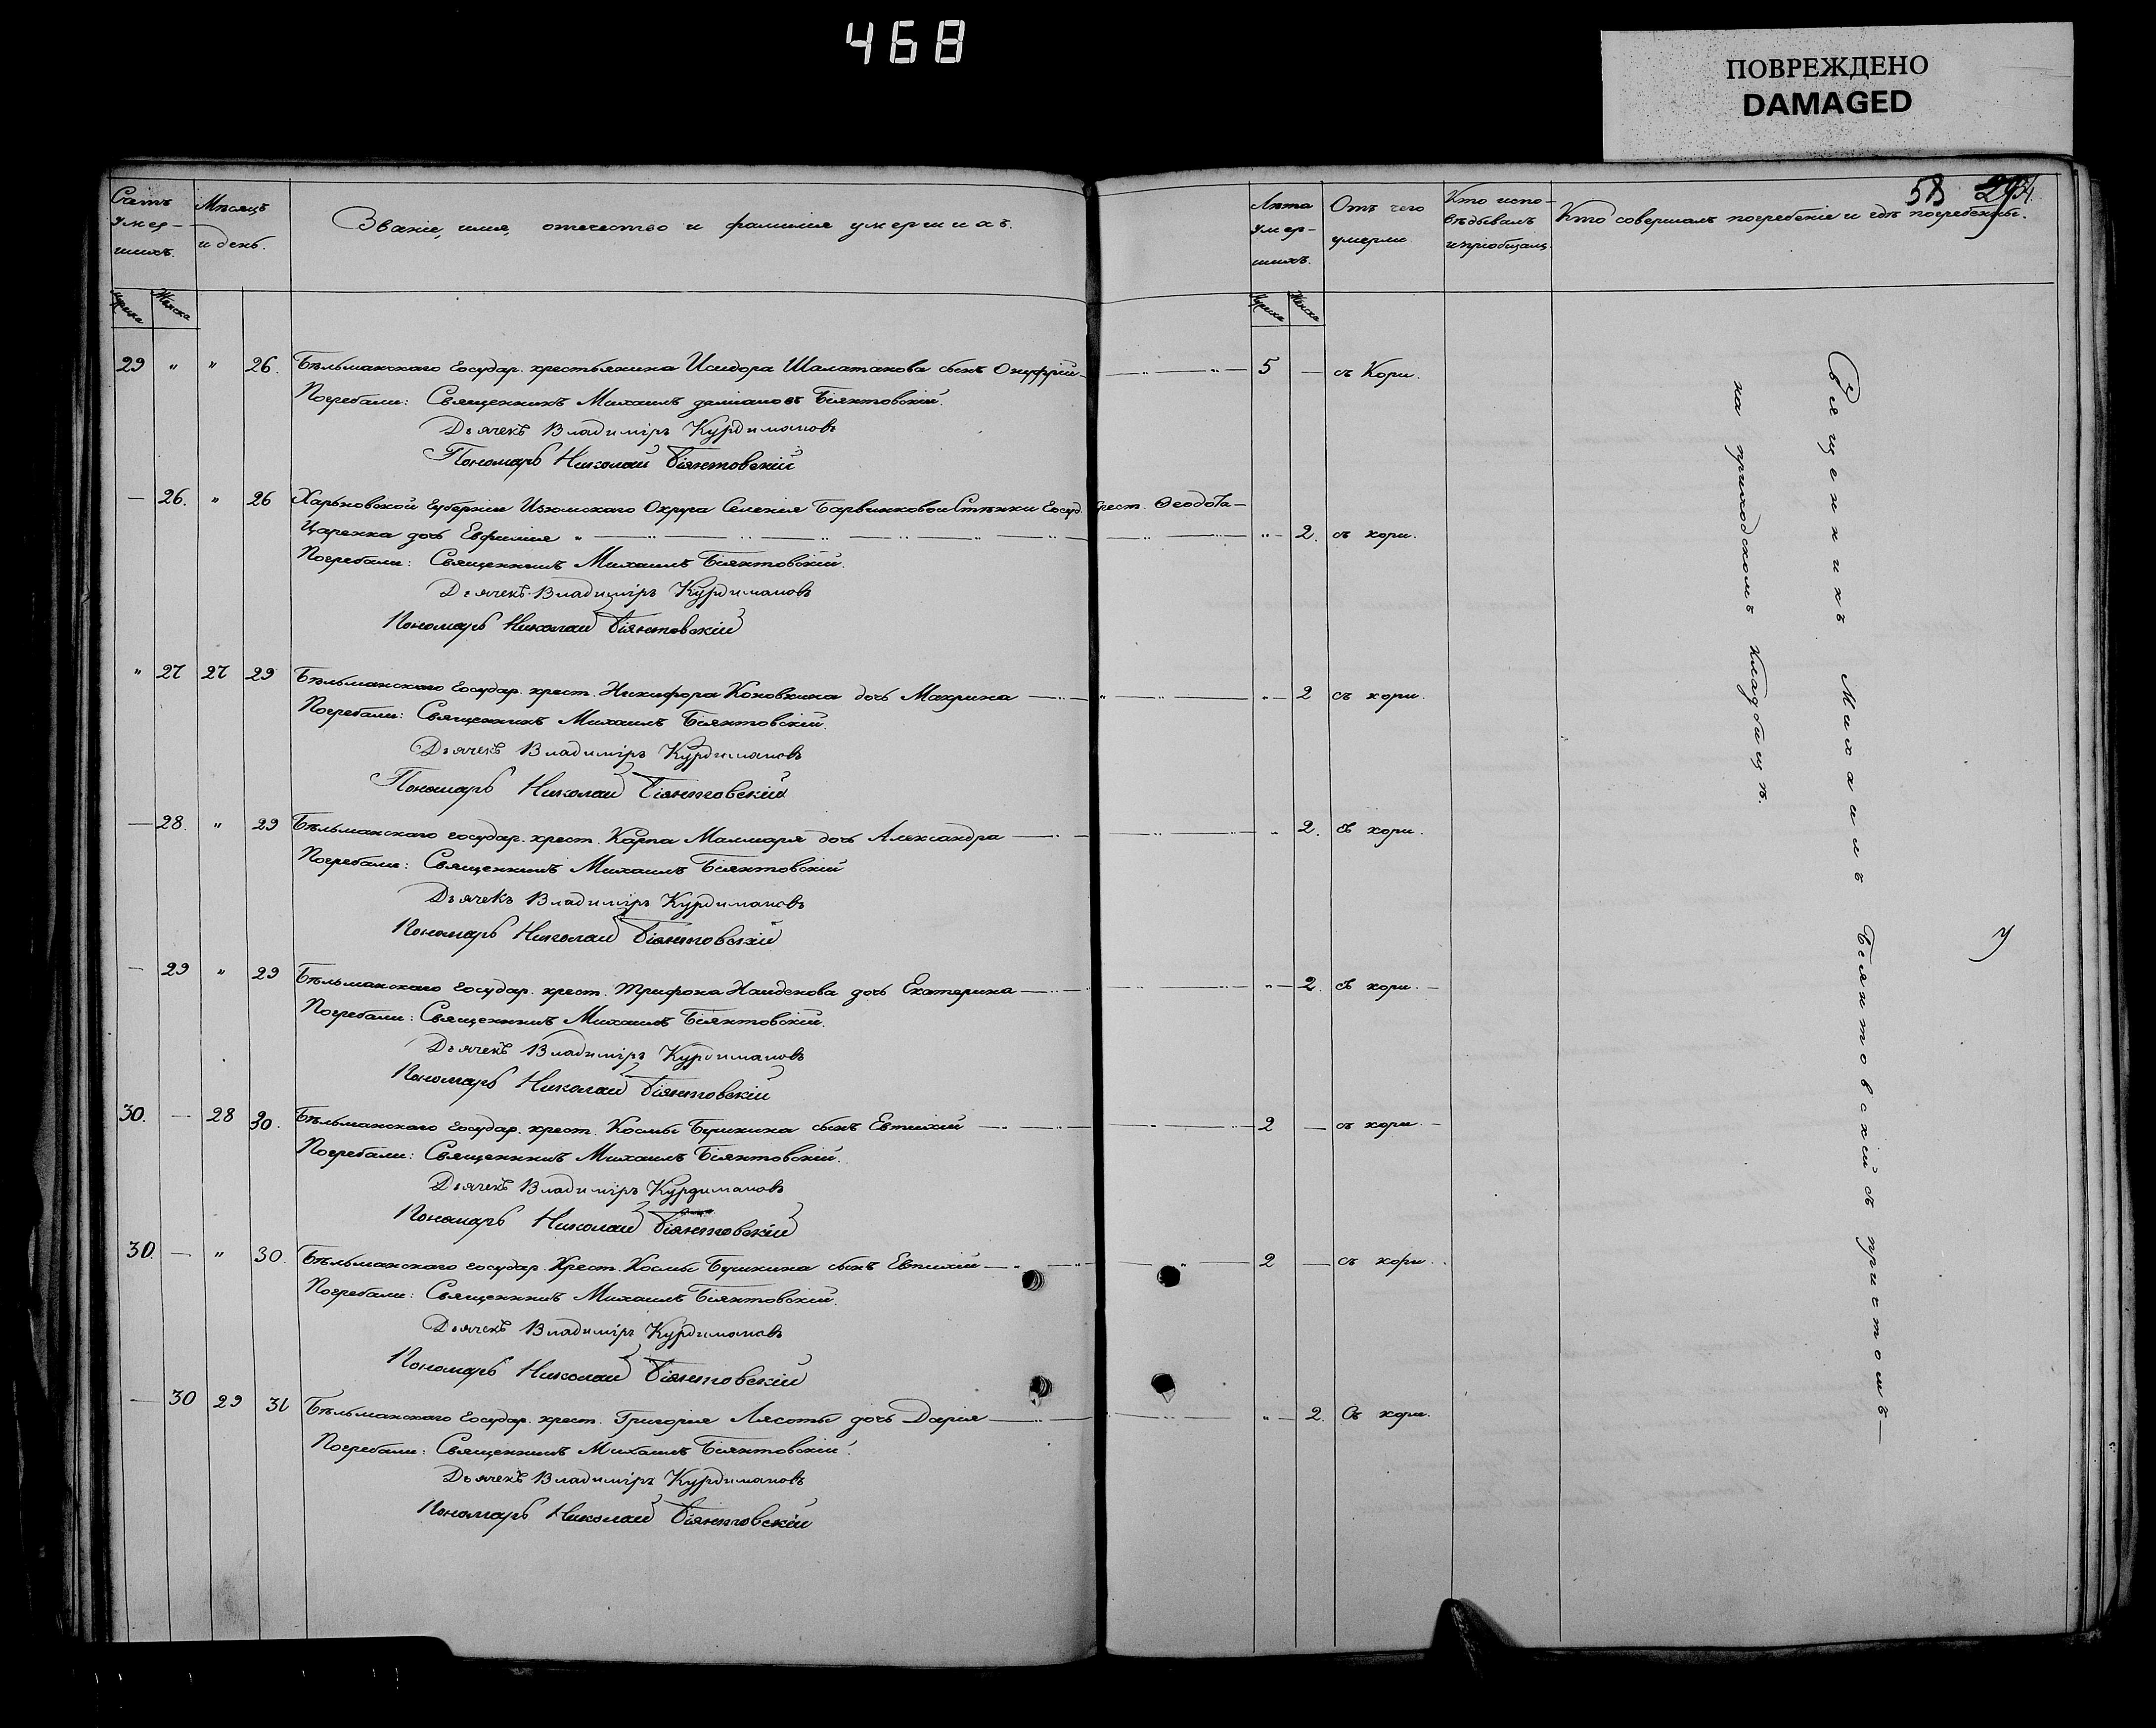 468
ПОВРЕЖДЕНО
DAMAGED
58 294.
Счетъ умершихъ.
Мужска Женска
Мѣсяцъ и день.
Званіе, имя, отчество и фамилія умершихъ.
Лѣта умершихъ.
Мужска Женска
Отъ чего умерли
Кто исповѣдывалъ и пріобщалъ
Кто совершалъ погребеніе и гдѣ погребены.
29 " " 26. Бѣльманскаго государ. крестьянина Исидора Шалатанова сынъ Онуфрій 5 — съ Кори.
Погребали: Священникъ Михаилъ Даміановъ Біянтовскій.
Дьячекъ Владиміръ Курдимановъ
Пономарь Николай Біянтовскій
— 26. " 26 Харьковской Губерніи Изюмскаго Округа Селенія Барвинковой Стѣнки Госуд. Крест. Ѳеодота —
Царенка дочь Евфимія " — " — 2. съ кори.
Погребали: Священникъ Михаилъ Біянтовскій.
Дьячекъ Владиміръ Курдимановъ
Пономарь Николай Біянтовскій
" 27 27 29 Бѣльманскаго Государ. крест. Никифора Коновкина дочь Макрина — " — 2 съ кори.
Погребали: Священникъ Михаилъ Біянтовскій.
Дьячекъ Владиміръ Курдимановъ
Пономарь Николай Біянтовскій
— 28. " 29 Бѣльманскаго государ. крест. Карпа Маляря дочь Александра — " 2. съ кори.
Погребали: Священникъ Михаилъ Біянтовскій
Дьячекъ Владиміръ Курдимановъ
Пономарь Николай Біянтовскій
— 29 " 29 Бѣльманскаго Государ. крест. Трифона Найденова дочь Екатерина — " — 2. съ кори. —
Погребали: Священникъ Михаилъ Біянтовскій.
Дьячекъ Владиміръ Курдимановъ
Пономарь Николай Біянтовскій
30. — 28 30. Бѣльманскаго Государ. крест. Космы Бушкина сынъ Евтихій — 2 — съ кори. —
Погребали: Священникъ Михаилъ Біянтовскій.
Дьячекъ Владиміръ Курдимановъ
Пономарь Николай Біянтовскій
30. — " 30. Бѣльманскаго государ. Крест. Космы Бушкина сынъ Евтихій — 2 — съ кори.
Погребали: Священникъ Михаилъ Біянтовскій.
Дьячекъ Владиміръ Курдимановъ
Пономарь Николай Біянтовскій
— 30 29 31 Бѣльманскаго Государ. крест. Григорія Лясоты дочь Дарія — " — 2. Съ кори.
Погребали: Священникъ Михаилъ Біянтовскій.
Дьячекъ Владиміръ Курдимановъ
Пономарь Николай Біянтовскій
Священникъ Михаилъ Біянтовскій съ причтомъ —
на приходскомъ кладбищѣ.